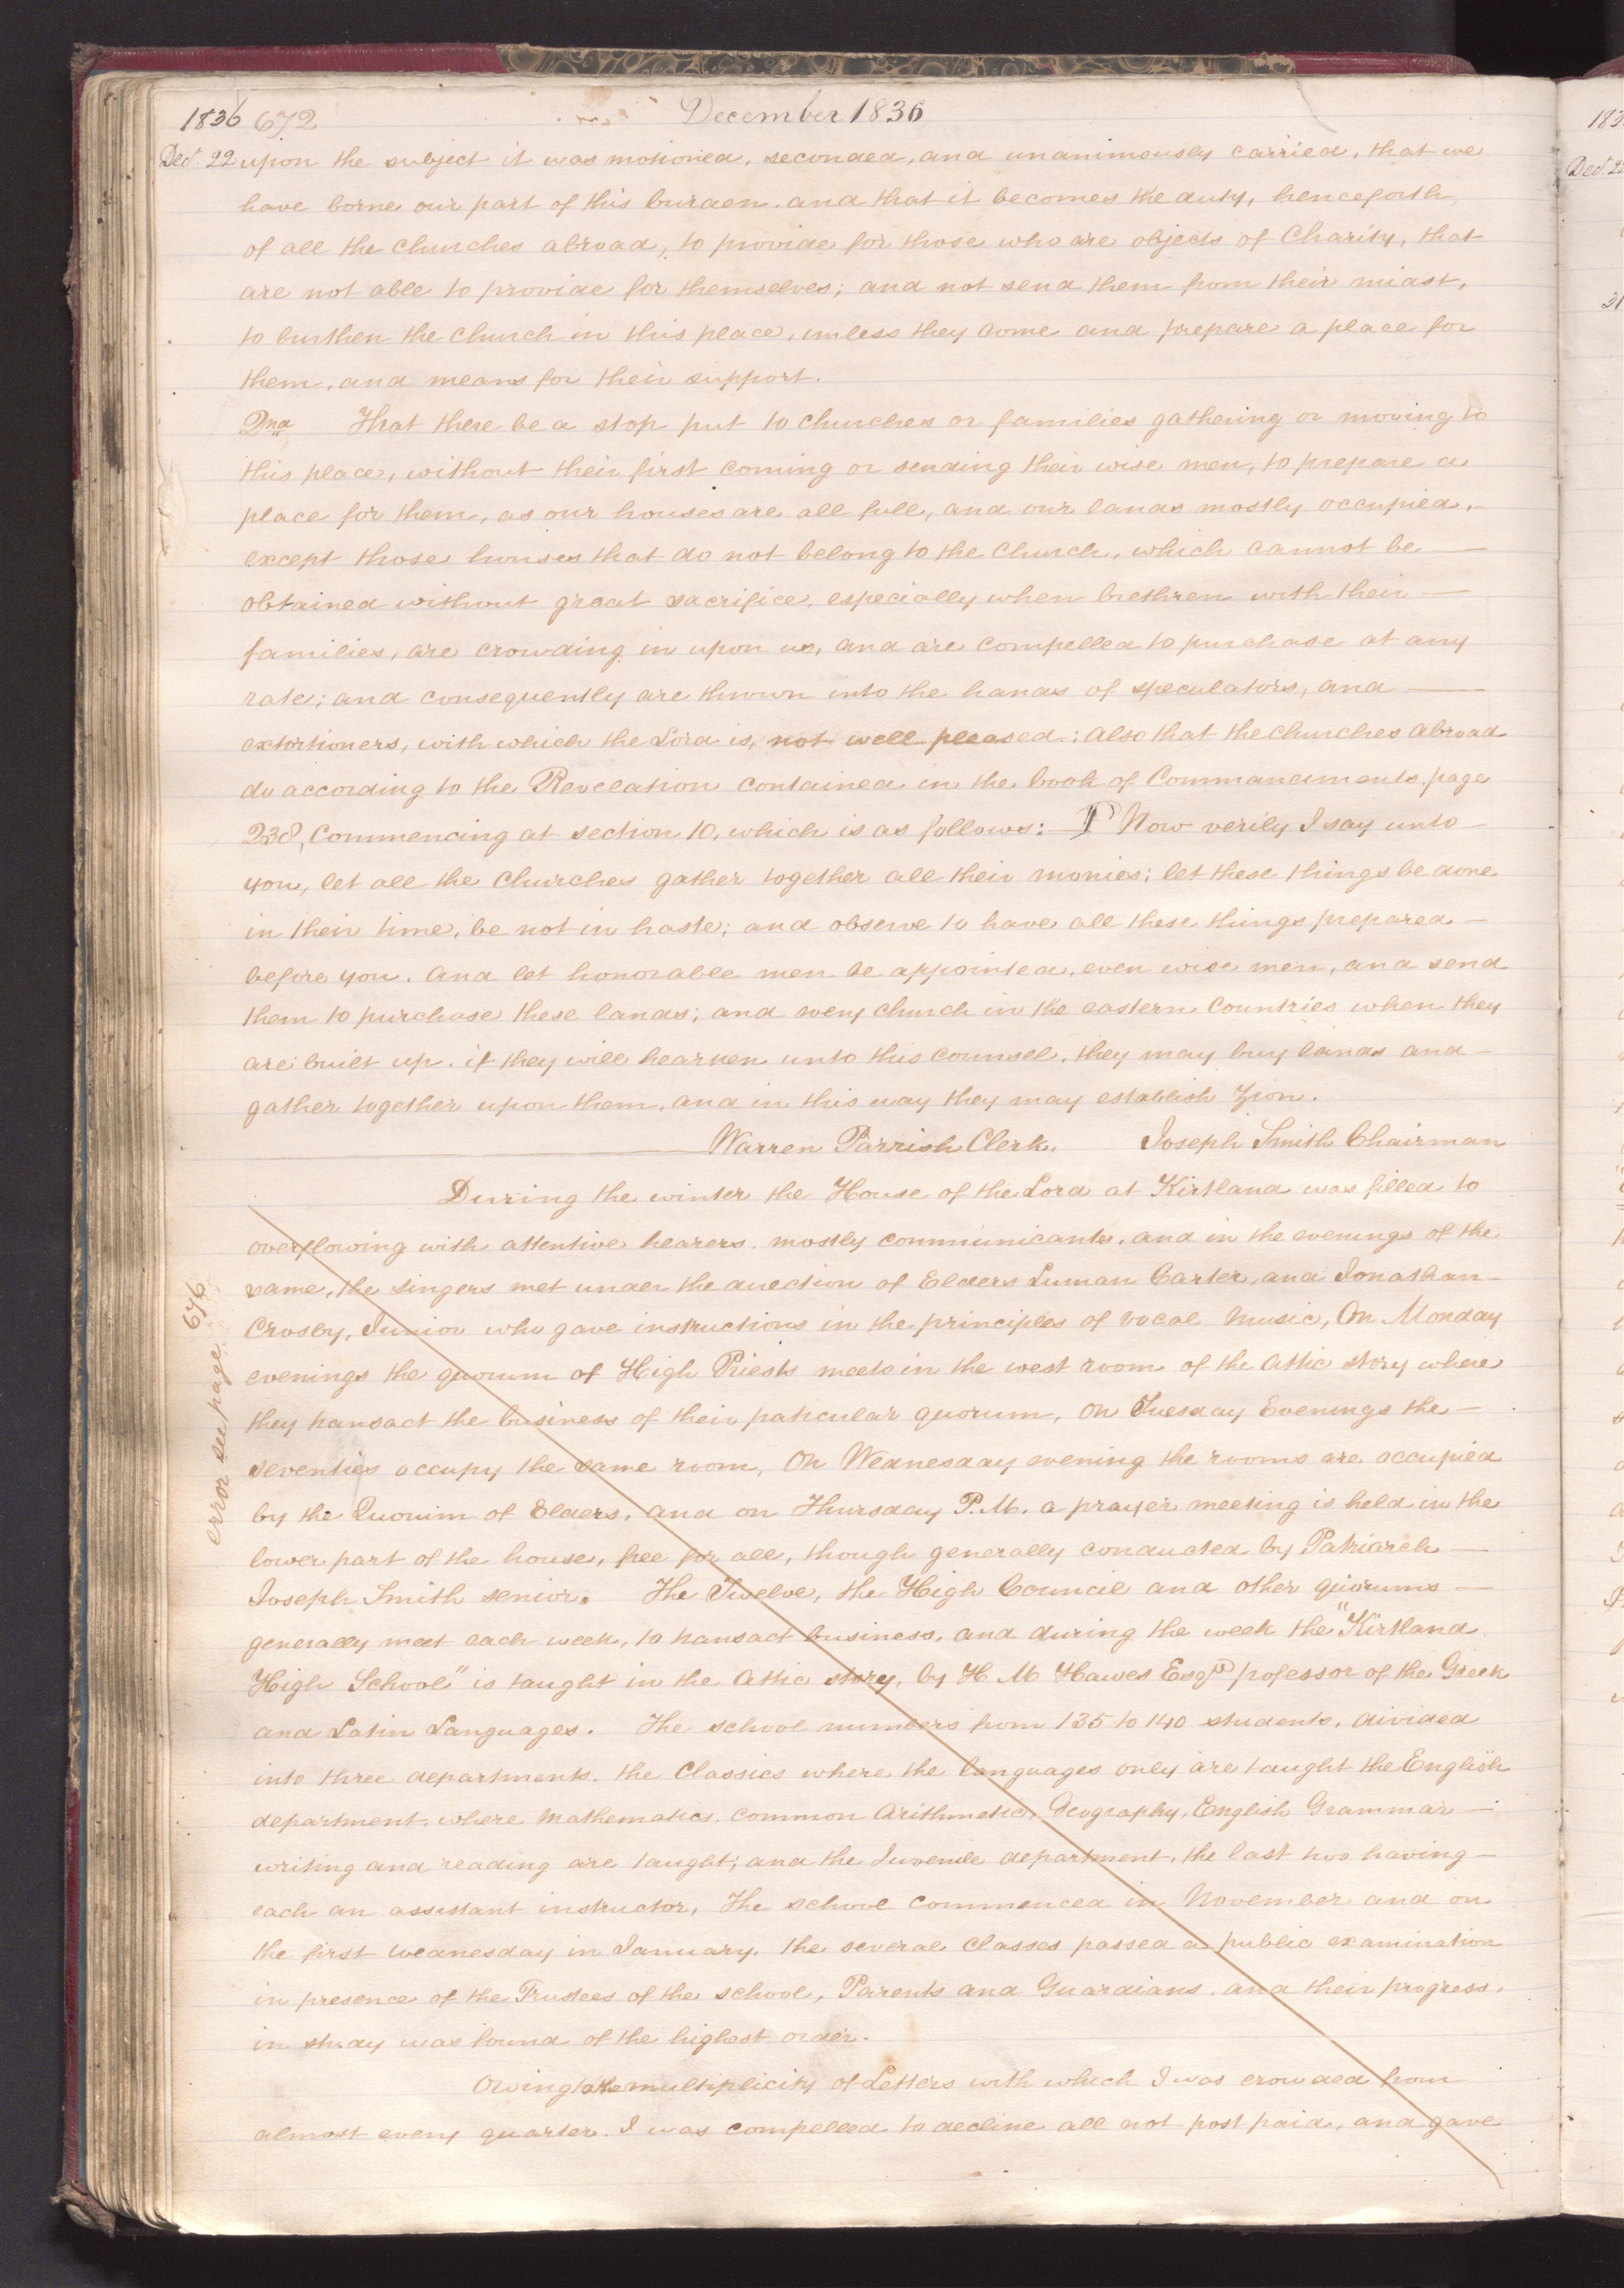 1836 672 December 1836
Dec.r 22 upon the subject it was motioned, seconded, and unanimously carried, that we
have borne our part of this burden, and that it becomes the duty, henceforth,
of all the churches abroad, to provide for those who are objects of Charity, that
are not able to provide for themselves; and not send them from their midst,
to burthen the church in this place, unless they come and prepare a place for
them, and means for their support.
2nd That there be a stop put to churches or families gathering or moving to
this place, without their first coming or sending their wise men, to prepare a
place for them, as our houses are all full, and our lands mostly occupied,
except those houses that do not belong to the church, which cannot be —
obtained without great sacrifice, especially when brethren with their —
families, are crowding in upon us, and are compelled to purchase at any
rate; and consequently are thrown into the hands of speculators, and —
extortioners, with which the Lord is, not well pleased.: Also that the churches abroad
do according to the Revelation contained in the book of Commandments page
238, Commencing at section 10, which is as follows:— P Now verily I say unto —
you, let all the churches gather together all their monies; let these things be done
in their time, be not in haste; and observe to have all these things prepared —
before you. And let honorable men be appointed, even wise men, and send
them to purchase these lands; and every church in the eastern countries when they
are built up, if they will hearken unto this counsel, they may buy lands and —
gather together upon them, and in this way they may establish Zion.
Warren Parrish Clerk. Joseph Smith Chairman
During the winter the House of the Lord at Kirtland was filled to
overflowing with attentive hearers, mostly communicants, and in the evenings of the
same, the singers met under the direction of Elders Luman Carter, and Jonathan —
Crosby, Junior who gave instructions in the principles of vocal music, On Monday
evenings the quorum of High Priests meets in the west room of the Attic story where
they transact the business of their paticular quorum, on Tuesday Evenings the —
seventies occupy the same room, On Wednesday evening the rooms are occupied
by the Quorum of Elders, and on Thursday P.M. a prayer meeting is held in the
lower part of the house, free for all, though generally conducted by Patriarch —
Joseph Smith senior. The Twelve, the High Council and other quorums —
generally meet each week, to transact business, and during the week the "Kirtland
High School" is taught in the Attic story, by H M Hawes Esqr professor of the Greek
and Latin Languages. The school numbers from 135 to 140 students, divided
into three departments, the Classics where the languages only are taught the English
department, where Mathematics, common Arithmetic, Geography, English Grammar —
writing and reading are taught; and the Juvenile department, the last two having —
each an assistant instructor, The school commenced in November and on
the first wednesday in January, the several classes passed a public examination
in presence of the Trustees of the school, Parents and Guardians, and their progress,
in study was found of the highest order.
Owing to the multiplicity of Letters with which I was crowded from
almost every quarter, I was compelled to decline all not post paid, and gave
error see page 676
183
Dec.r 22